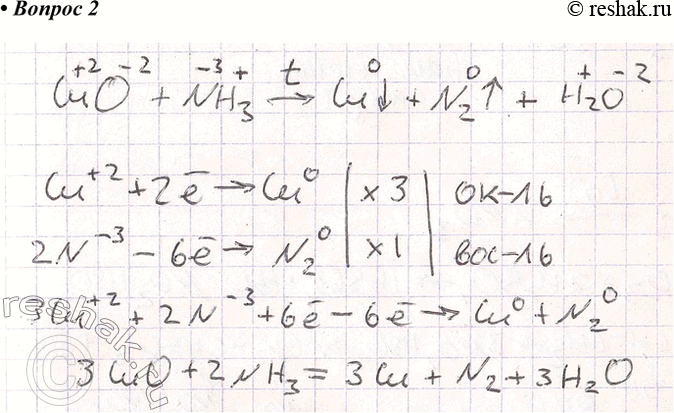 • Вопрос 2
© reshak.ru
Cu⁺²O⁻² + N⁻³H₃⁺ →ᵗ Cu⁰↓ + N₂⁰↑ + H₂⁺O⁻²
Cu⁺² + 2ē → Cu⁰ | x 3 | ок-ль
2N⁻³ - 6ē → N₂⁰ | x 1 | вос-ль
3Cu⁺² + 2N⁻³ + 6ē - 6ē → Cu⁰ + N₂⁰
3CuO + 2NH₃ = 3Cu + N₂ + 3H₂O
reshak.ru